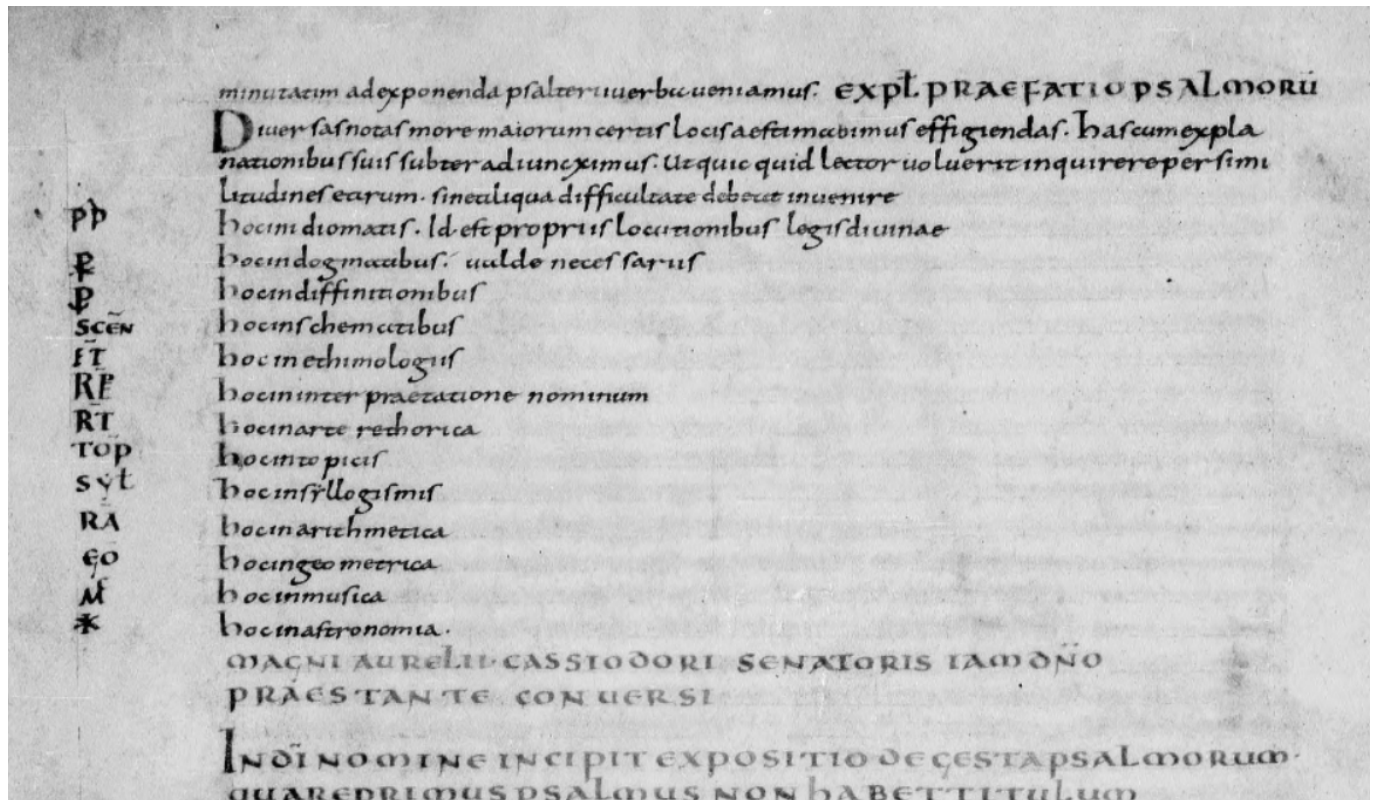 minutatim adexponenda psalterii uerba ueniamus. EXPL̄ PRAEFATIO PSALMORŪ
Diuersas notas more maiorum certis locis aestimabimus effigiendas. has cum expla
nationibus suis subter adiunximus. Ut quic quid lector uoluerit inquirere per simi
litudines earum. sine aliqua difficultate debeat inuenire
pp̄ hoc in idiomatis. Id est propriis locutionibus legis diuinae
hoc in dogmatibus. ualde necessariis
hoc in diffinitionibus
SCEN̄ hoc in schematibus
hoc in ethimologiis
RP̄ hoc in inter praetatione nominum
RT hoc in arte rethorica
TOP̄ hoc in topicis
SYL̄ hoc in syllogismis
RĀ hoc in arithmetica
ḠO hoc in geometrica
M̄ hoc in musica
* hoc in astronomia.
MAGNI AURELII CASSIODORI SENATORIS IAM DÑO
PRAESTANTE CONUERSI
IN DĪ NOMINE INCIPIT EXPOSITIO DEGESTA PSALMORUM.
QUARE PRIMUS PSALMUS NON HABET TITULUM